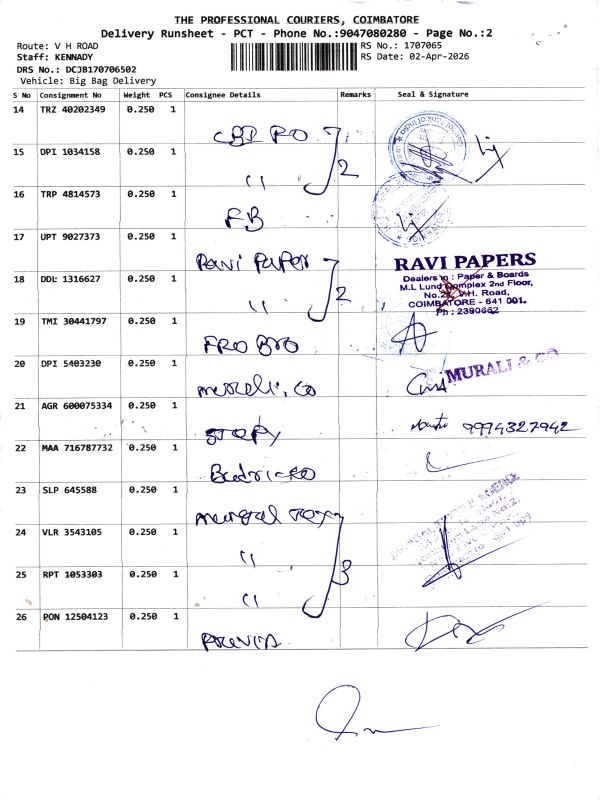 THE PROFESSIONAL COURIERS, COIMBATORE
Delivery Runsheet - PCT - Phone No.:9047080280 - Page No.:2
Route: V H ROAD
RS No.: 1707065
Staff: KENNADY
RS Date: 02-Apr-2026
DRS No.: DCJB170706502
Vehicle: Big Bag Delivery
S No Consignment No Weight PCS Consignee Details Remarks Seal & Signature
14 TRZ 40202349 0.250 1
CBI RO
15 DPI 1034158 0.250 1
" 2
16 TRP 4814573 0.250 1
FB
17 UPT 9027373 0.250 1
Ravi Paper
RAVI PAPERS
Dealers in : Paper & Boards
M.L Lund Complex 2nd Floor,
18 DDL 1316627 0.250 1
No.2 V.H. Road,
COIMBATORE - 641 001.
" 2
Ph : 2390662
19 TMI 30441797 0.250 1
FRO BRO
20 DPI 5403230 0.250 1
MURALI & CO
murali, co
21 AGR 600075334 0.250 1
9994327942
22 MAA 716787732 0.250 1
23 SLP 645588 0.250 1
24 VLR 3543105 0.250 1
"
25 RPT 1053303 0.250 1
" 3
26 PON 12504123 0.250 1